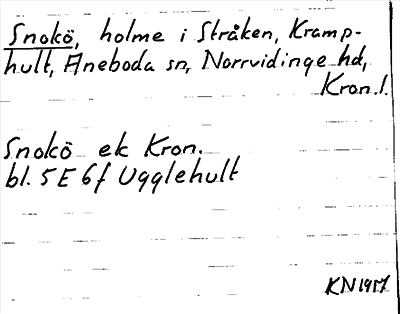 Snokö, holme i Stråken, Kramp-
hult, Aneboda sn, Norrvidinge hd,
Kron. l.
Snokö ek Kron.
bl. 5 E 6f Ugglehult
KN 1957